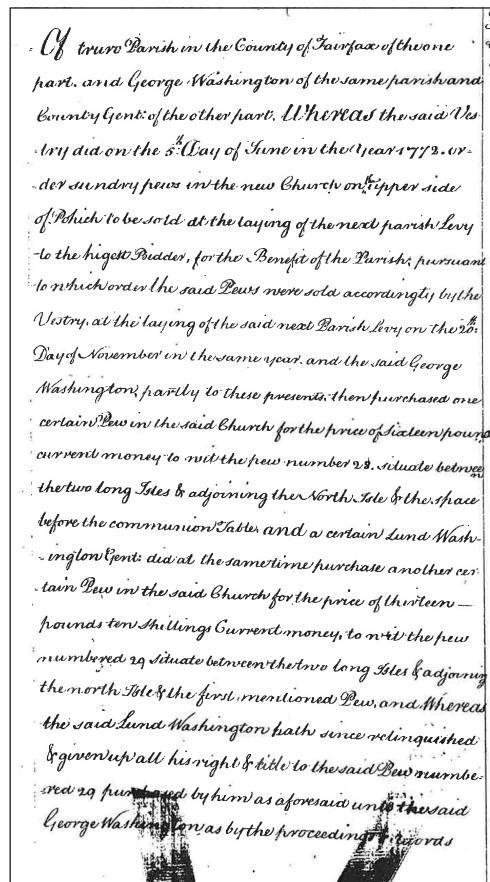 Of truro Parish in the County of Fairfax of the one
part. and George Washington of the same parish and
County Gent: of the other part. Whereas the said Ves-
try did on the 5th: Day of June in the Year 1772. or-
der sundry pews in the new Church on the upper side
of Pohich to be sold at the laying of the next parish Levy
to the higest Bidder, for the Benefit of the Parish; pursuant
to which order the said Pews were sold accordingly by the
Vestry, at the laying of the said next Parish Levy on the 20th:
Day of November in the same year. and the said George
Washington, partly to these presents, then purchased one
certain Pew in the said Church for the price of Sixteen pound
current money to wit the pew number 28. situate between
the two long Isles & adjoining the North Isle & the space
before the communion Table, and a certain Lund Wash-
-ington Gent: did at the same time purchase another cer-
tain Pew in the said Church for the price of thirteen —
pounds ten shillings Current money, to wit the pew
numbered 29 situate between the two long Isles & adjoining
the north Isle & the first mentioned Pew, and Whereas
the said Lund Washington hath since relinquished
& given up all his right & title to the said Pew numbe-
red 29 purchased by him as aforesaid unto the said
George Washington as by the proceedings & records